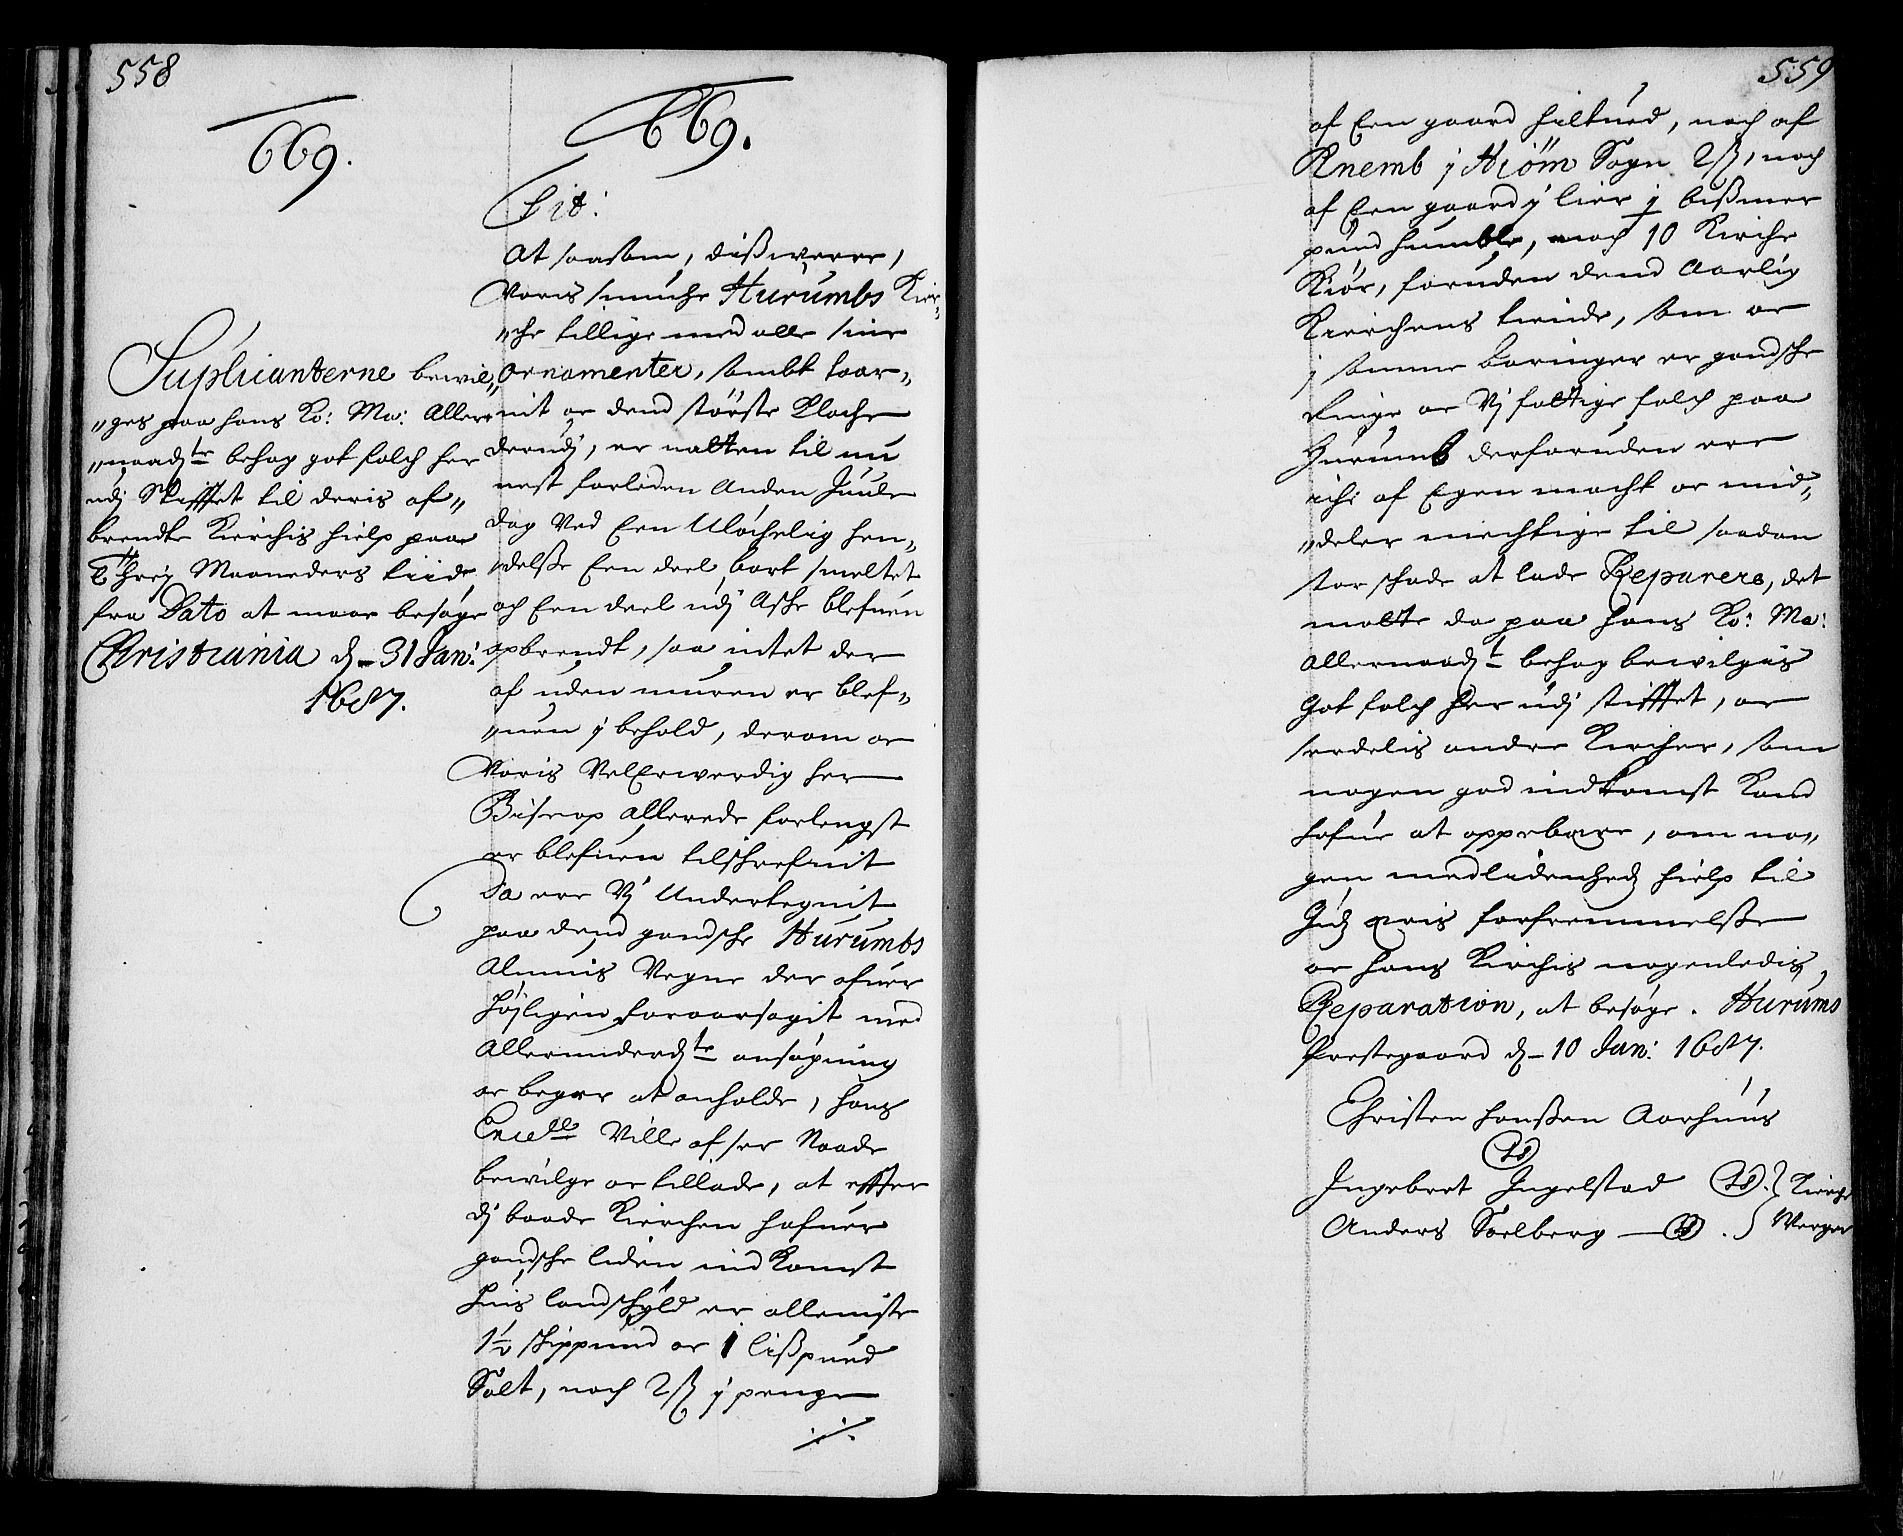 558
669.
Supliianterne bewil„
„ges paa hans Ko: Ma: Aller
„naad^te behag got folch her
udj Stifftet til deris af„
brendte Kierchis hielp paa
Threj Maaneders tiid
fra Dato at maa besøge
Christiania d. 31 Jan:
1687.
669.
Tit:
At saasom, dißwerre,
Woris smuche Hurumbs Kier„
„che tillige med alle sine
Ornamenter, sambt taar„
nit oc dend største Kloche
derudj, er natten til nu
nest forleden Anden Juule
dag Ved Een Uløchelig hen„
delse Een deel bort smeltet
och Een deel udj Aske blefuen
opbrendt, saa intet der
af uden muren er blef„
„uen j behold, derom oc
Woris VelErwerdig her
Bisrop allerede forlengst
er blefuen tilskrefuit
Da ere Vj Undertegnit
paa dend gandske Hurumbs
Almuis Vegne der ofuer
Høyligen foraarsagit med
Allerunderd^te ansøgning
oc begær at anholde, hans
Excell^e Ville af ser Naade
bewilge oc tillade, at effter
dj baade Kierchen hafuer
gandske liden ind Komst
huis landskyld er alleniste
1½ skippund oc 1 lißpund
Salt, noch 2 ß j penge
./.
559
af Een gaard hiltued, noch af
Knemb j Hiøm Sogn 2 ß, noch
af Een gaard j lier j bißmer
pund humble, noch 10 Kirche
Kiør, foruden dend Aarlig
Kierchens tiende, som oc
j samme Beringer er gandske
Ringe oc Vj fattige folch paa
Hurumb derforuden ere
iche af Egen macht oc mid„
„deler mechtige til saadan
stor skade at lade Reparere, det
motte da paa hans Ko: Ma:
allernaad^t behag bewilgis
Got folch her udj stifftet, oc
serdelis andre Kircher, som
nogen god indkomst Kand
hafue at oppebære, om no„
gen medlidenhed hielp til
Guds æris forfremmelße
oc hans Kirchis nogenledis
Reparation, at besøge. Hurums
Prestegaard d. 10 Jan: 1687.
Christen Hanßen Aarhuus
LS
Ingebret Ingelstad LS. } Kirche
Anders Sælberg — LS. } Werger